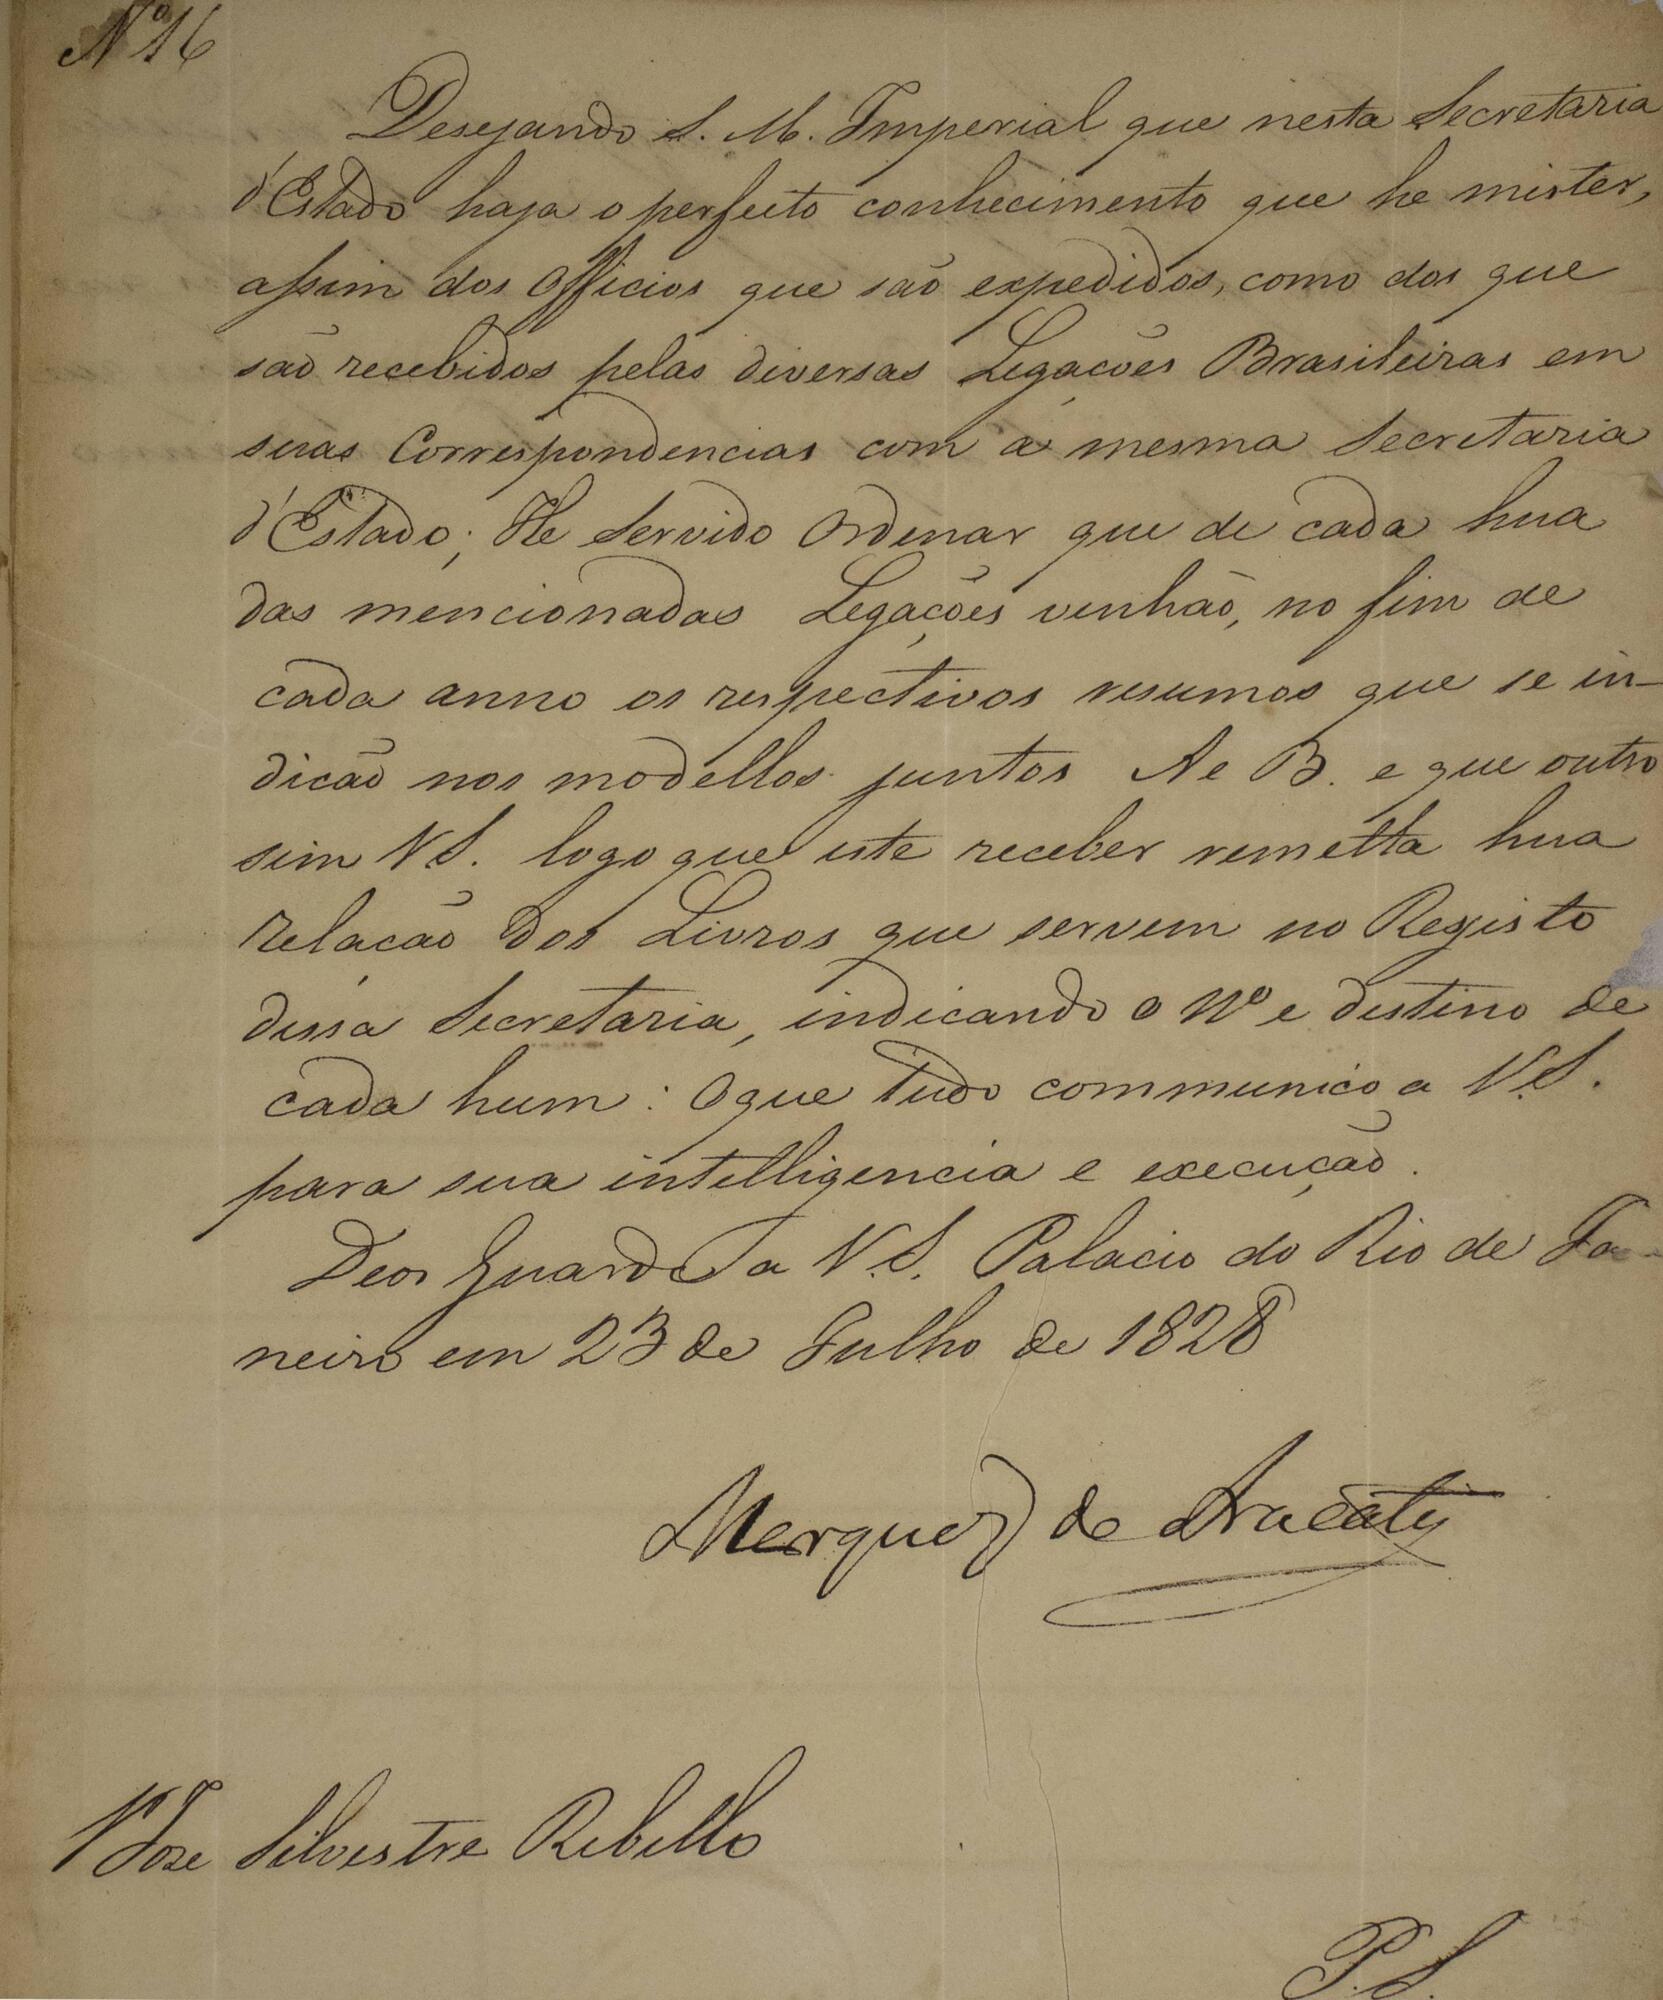 Nº 16
Desejando S. M. Imperial que nesta Secretaria
d'Estado haja o perfeito conhecimento que he mister,
assim dos Officios que são expedidos, como dos que
são recebidos pelas diversas Legações Brasileiras em
suas Correspondencias com a mesma Secretaria
d'Estado; He Servido Ordenar que de cada hua
das mencionadas Legações venhão, no fim de
cada anno os respectivos resumos que se in-
dicão nos modellos juntos A e B. e que outro
sim V. S. logo que este receber remetta hua
relação dos Livros que servem no Registo
dessa Secretaria, indicando o Nº e destino de
cada hum: O que tudo communico a V. S.
para sua intelligencia e execução.
Deos Guarde a V. S. Palacio do Rio de Ja-
neiro em 23 de Julho de 1828
Marquez de Aracaty
Jose Silvestre Rebello
P. S.